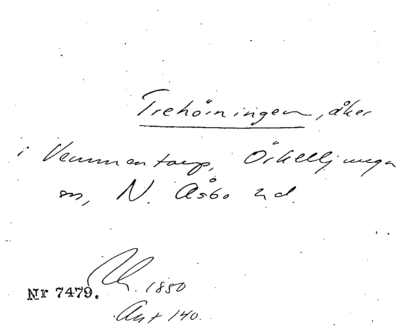 Trehörningen, åker
i Vemmentorp, Örkelljunga
sn, N. Åsbo hd.
1850
Nr 7479.
Ant 140.